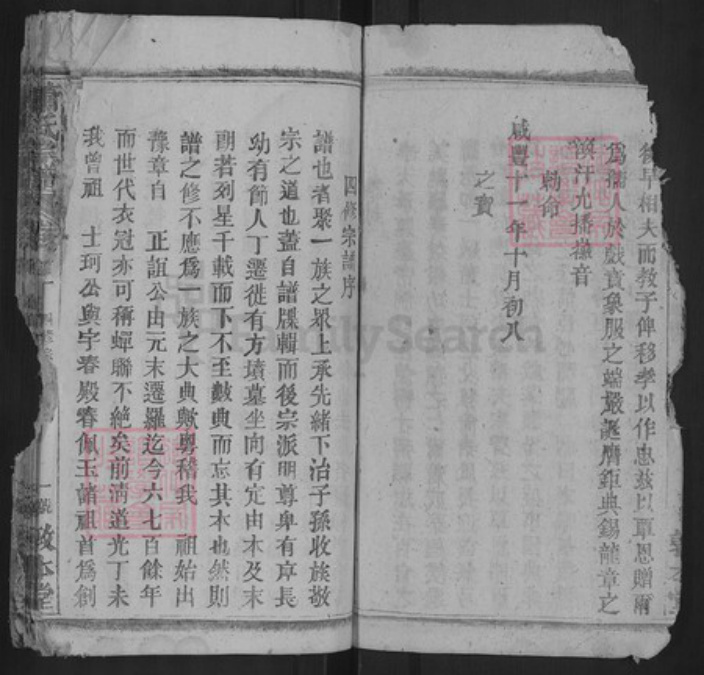 後早相夫而教子俾移孝以作忠茲以覃恩贈爾
為孺人於戲賁象服之端嚴誕膺鉅典錫龍章之
渙汗尤播徽音
勅命
咸豐十一年十月初八
之寶
四修宗譜序
譜也者聚一族之眾上承先緒下治子孫收族敬
宗之道也蓋自譜牒輯而後宗派明尊卑有序長
幼有節人丁遷徙有方墳墓坐向有定由本及末
朗若列星千載而下不至數典而忘其本也然則
譜之修不應為一族之大典歟粵稽我 祖始出
豫章自 正誼公由元末遷羅迄今六七百餘年
而世代衣冠亦可稱蟬聯不絕矣前清道光丁未
我曾祖 士珂公與宇春殿春佩玉諸祖首為創
敬本堂
FamilySearch